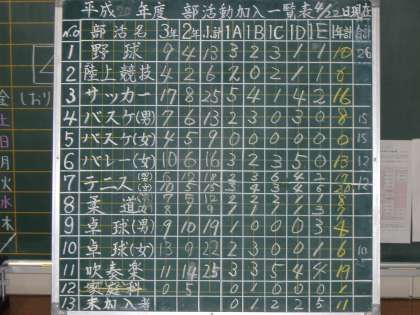 平成20年度 部活動加入一覧表 4/22日現在
No 部活名 3年 2年 小計 1A 1B 1C 1D 1E 1年計 合計
1 野球 9 4 13 3 2 3 1 1 10 26
2 陸上競技 4 2 6 2 0 2 1 1 6
3 サッカー 17 8 25 5 4 1 4 2 16
4 バスケ(男) 7 6 13 2 3 0 3 0 8 15
5 バスケ(女) 4 5 9 0 0 0 0 0 0
6 バレー(女) 10 6 16 3 2 3 5 0 13 12
7 テニス(男)
(女) 10 5 15 3 4 3 4 6 20
8 柔道
9 卓球(男) 9 10 19 1 0 0 0 3 4
10 卓球(女) 13 9 22 2 3 0 0 1 6 10
11 吹奏楽 11 14 25 3 3 5 4 4 19
12 家庭科 0 5 0 1 0 0 0 1
13 未加入者 0 1 2 2 5 11
金
土
日
月
火
水
木
(しおり